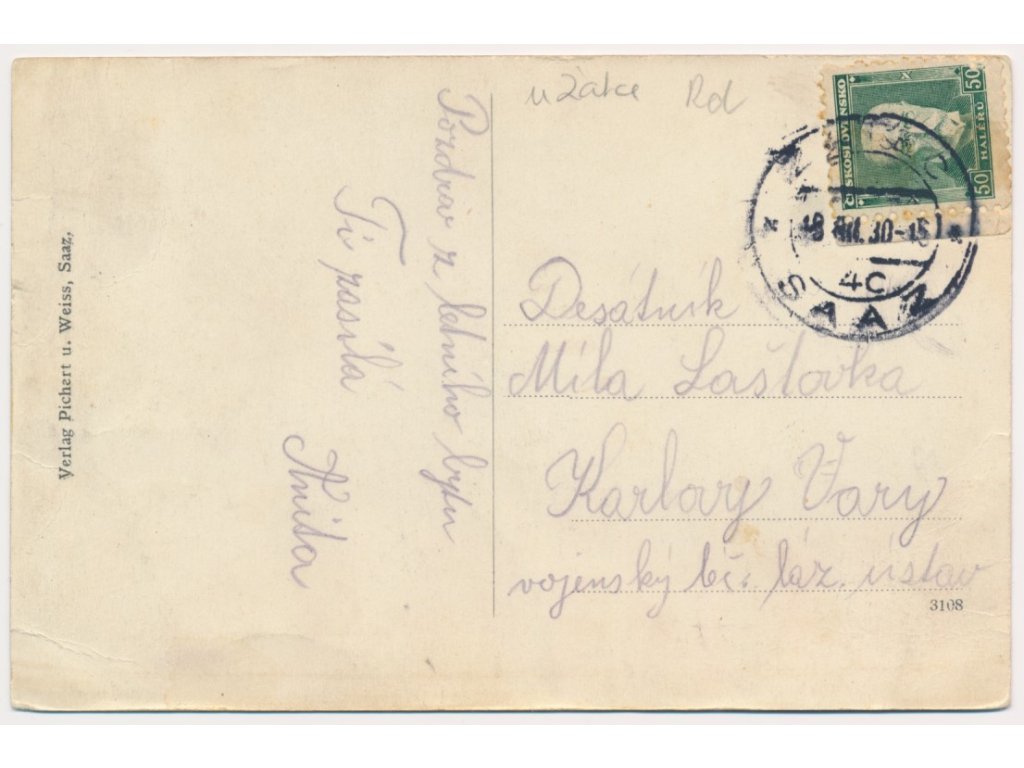 Verlag Pichert u. Weiss, Saaz,
Pozdrav z letního bytu
Ti zasílá
Anita
u Žatce Rd
ČESKOSLOVENSKO
50 HALÉŘŮ 50
30-15
4C
SAAZ
Desátník
Míla Lašťovka
Karlovy Vary
vojenský léč. láz. ústav
3108